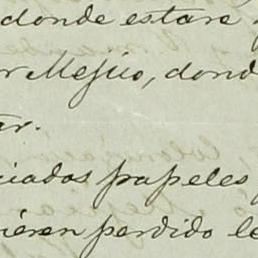 donde estare
r Mejico, dond
ar.
ciados papeles
ieren perdido le